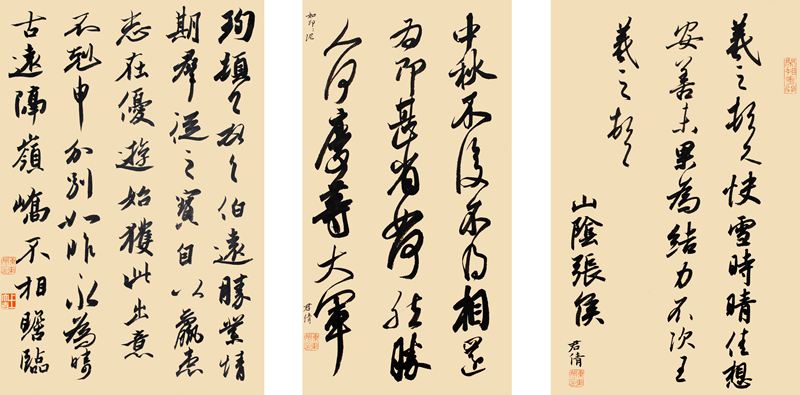 羲之頓首快雪時晴佳想
安善未果為結力不次王
羲之頓首
山陰張侯
君倩
中秋不復不得相還
為即甚省如何然勝
人何慶等大軍
君倩
珣頓首頓首伯遠勝業情
期群從之寶自以羸患
志在優遊始獲此出意
不剋申分別如昨永為疇
古遠隔嶺嶠不相瞻臨